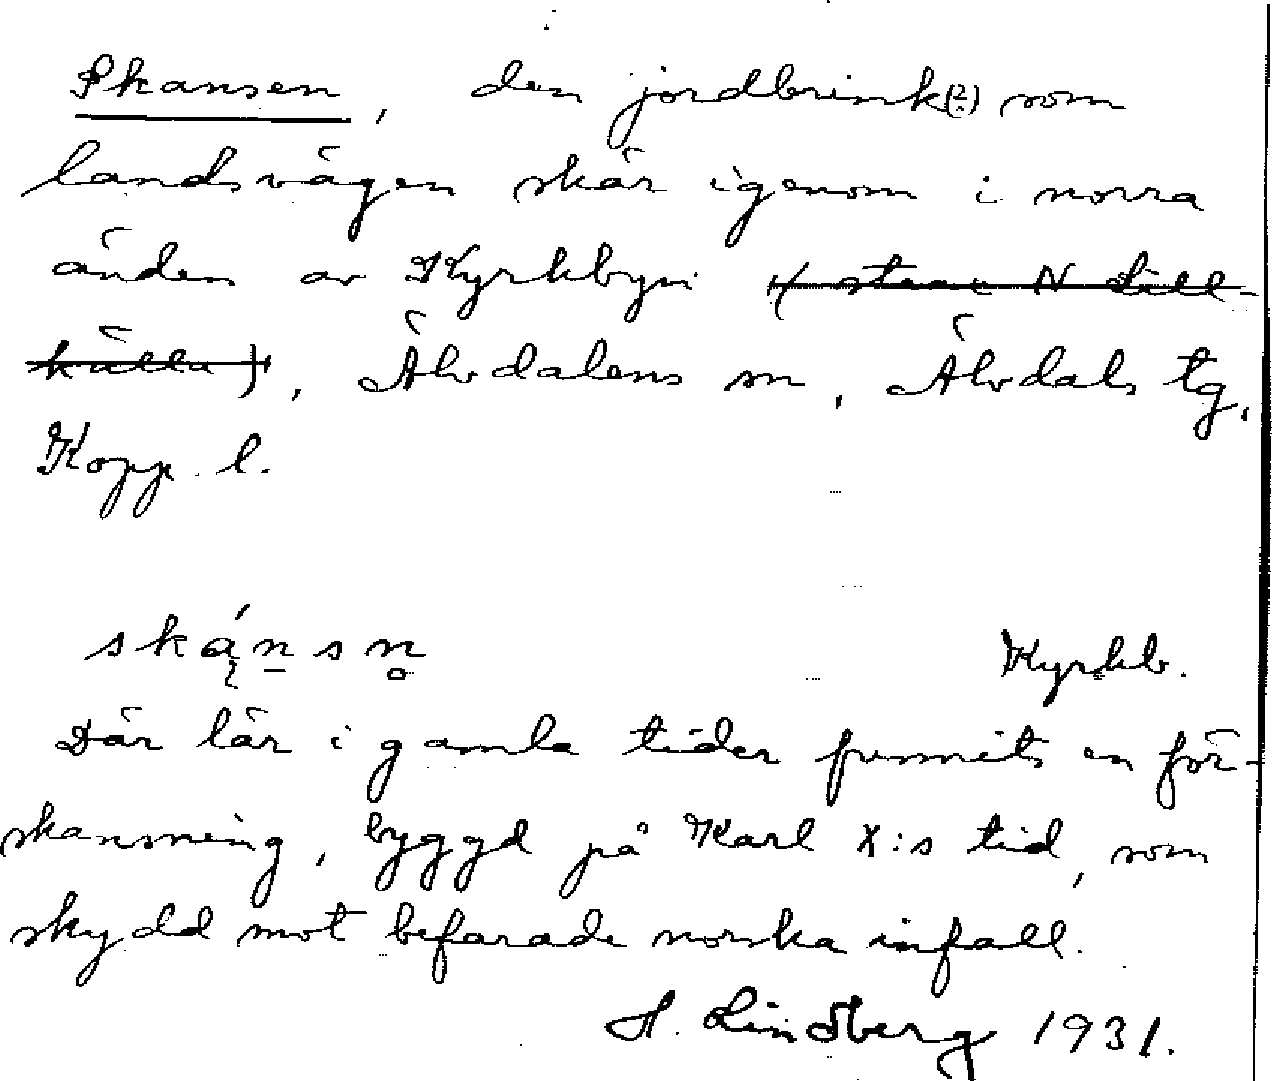 Skansen, den jordbrink(?) som
landsvägen skär igenom i norra
änden av Kyrkbyn
, Älvdalens sn, Älvdals tg,
Kopp. l.
ską́nsn̥ Kyrkb.
Där lär i gamla tider funnits en för-
skansning, byggd på Karl X:s tid, som
skydd mot befarade norska infall.
H. Lindberg 1931.